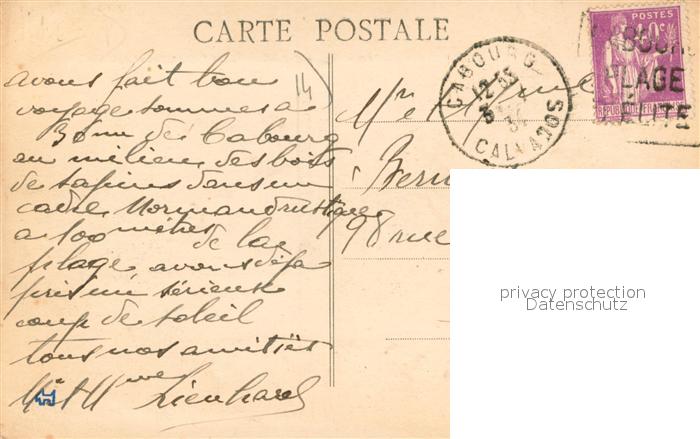 CARTE POSTALE
avons fait bon
voyage sommes a
3 de Cabourg
au milieu des bois
de sapins dans un
cadre Normand rustique
a 100 mètres de la
plage avons deja
pris un sérieux
coup de soleil
tous nos amitiés
Mr et Mme Lienhard
14
CABOURG
CALVADOS
POSTES
PLAGE
ELITE
Mr
à Bern
98 rue
privacy protection
Datenschutz